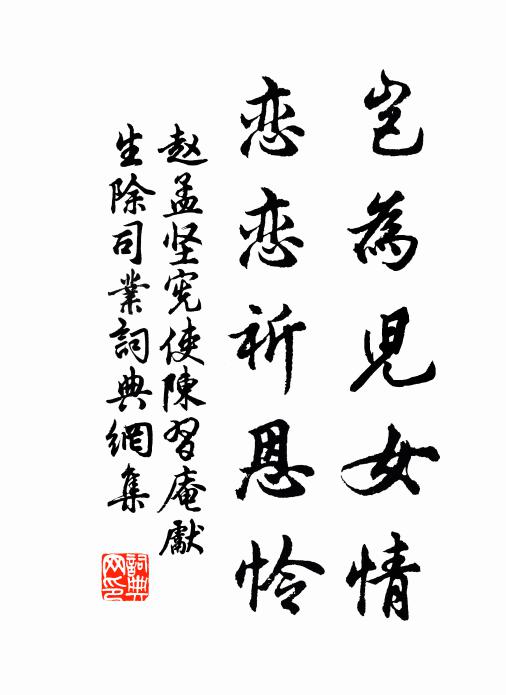 岂為兒女情
恋恋祈恩怜
赵孟坚宪使陳習庵獻
生除司業詞典網集
詞典
网印